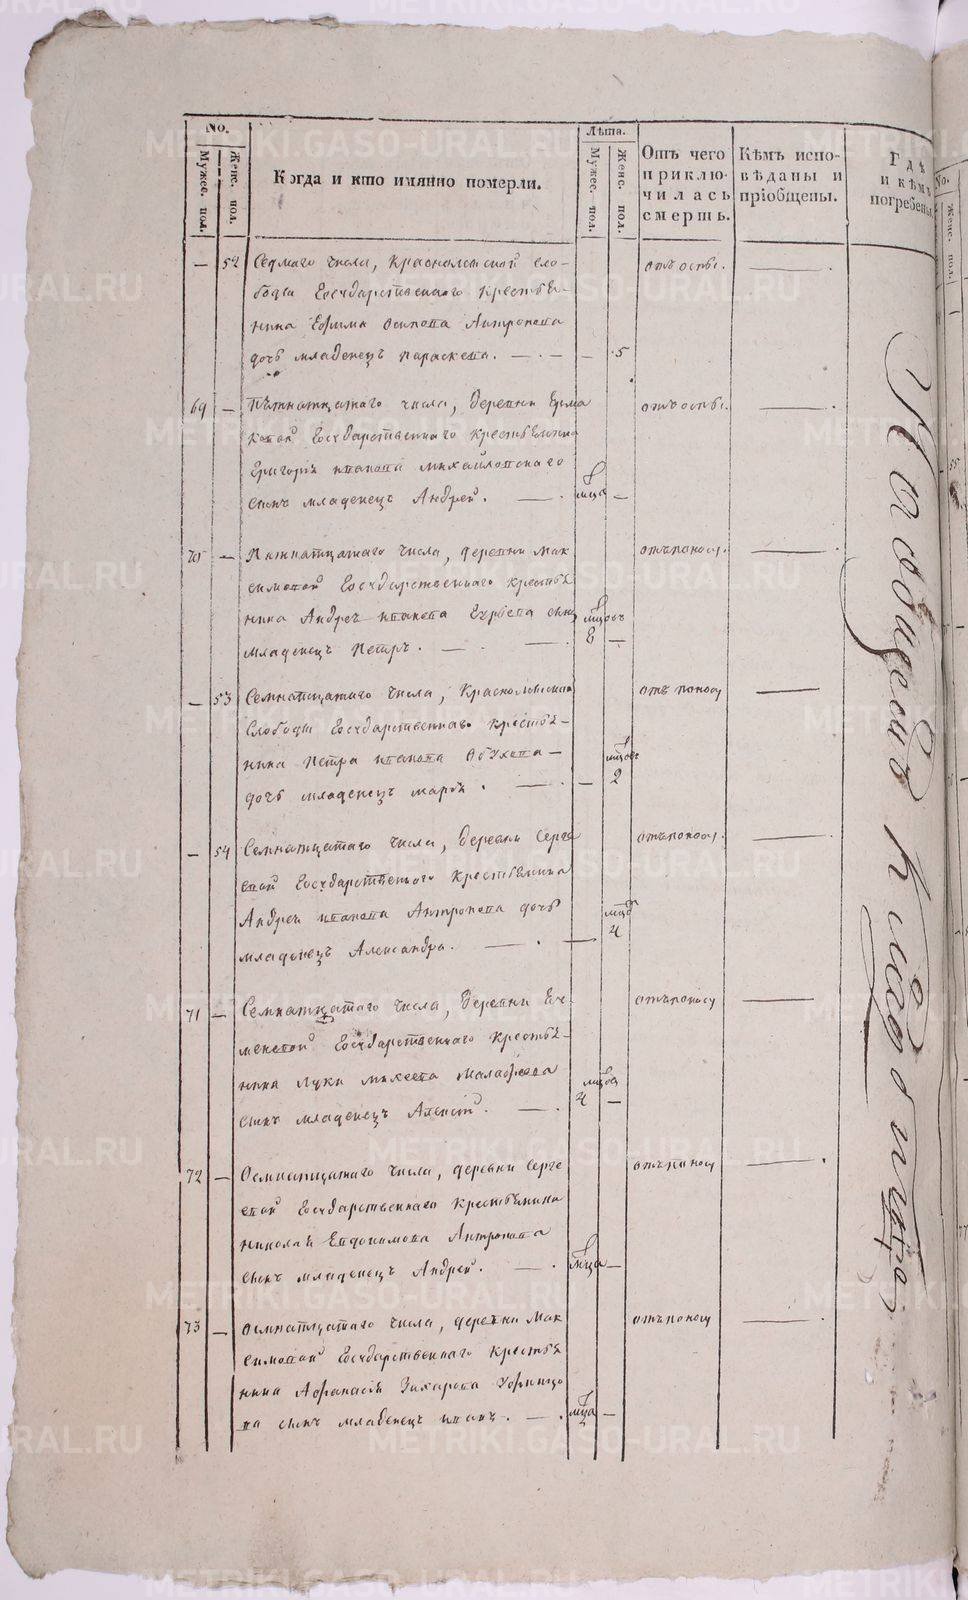 No.
Мужес. пол.
Женс. пол.
Когда и кто имянно померли.
Лѣта.
Мужес. пол.
Женс. пол.
Отъ чего приклю-
чилась
смерть.
Кѣмъ испо-
вѣданы и
пріобщены.
Гдѣ
и кѣмъ
погребены
— 52 Седмаго числа, Краснолетской сло-
боды Государственнаго крестья-
нина Ефима Осипова Антропова
дочь младенецъ Параскева. — 5
отъ оспы.
69 — Пятнатцатаго числа, деревни Ерма
ковой Государственнаго крестьянина
Григорія Иванова Михайловскаго
сынъ младенецъ Андрей. —
мца —
отъ оспы.
70 — Пятнатцатаго числа, деревни Мак
симовой Государственнаго крестья
нина Андрея Иванова сынъ
младенецъ Петръ. —
мцовъ
8 —
отъ поносу.
— 53 Семнатцатаго числа,
Слободы Государственнаго крестья-
нина Петра Иванова Обухова
дочь младенецъ Марія. —
мцовъ
2
отъ поносу
— 54 Семнатцатаго числа, деревни Серге
евой Государственнаго крестьянина
Андрея Иванова Антропова дочь
младенецъ Александра. —
4
отъ поносу.
71 — Семнатцатаго числа, деревни
Государственнаго крестья-
нина Луки Михеева Малафеева
сынъ младенецъ Алексей. —
4 —
отъ поносу
72 — Осмнатцатаго числа, деревни Серге
евой Государственнаго крестьянина
Николая Евдокимова Антропова
сынъ младенецъ Андрей. —
мца —
отъ поносу
73 — Осмнатцатаго числа, деревни Мак
симовой Государственнаго крестья
нина Афанасія Захарова
ва сынъ младенецъ Иванъ. —
мца —
отъ поносу
На общемъ кладбищѣ
No.
Женс. пол.
METRIKI.GASO-URAL.RU